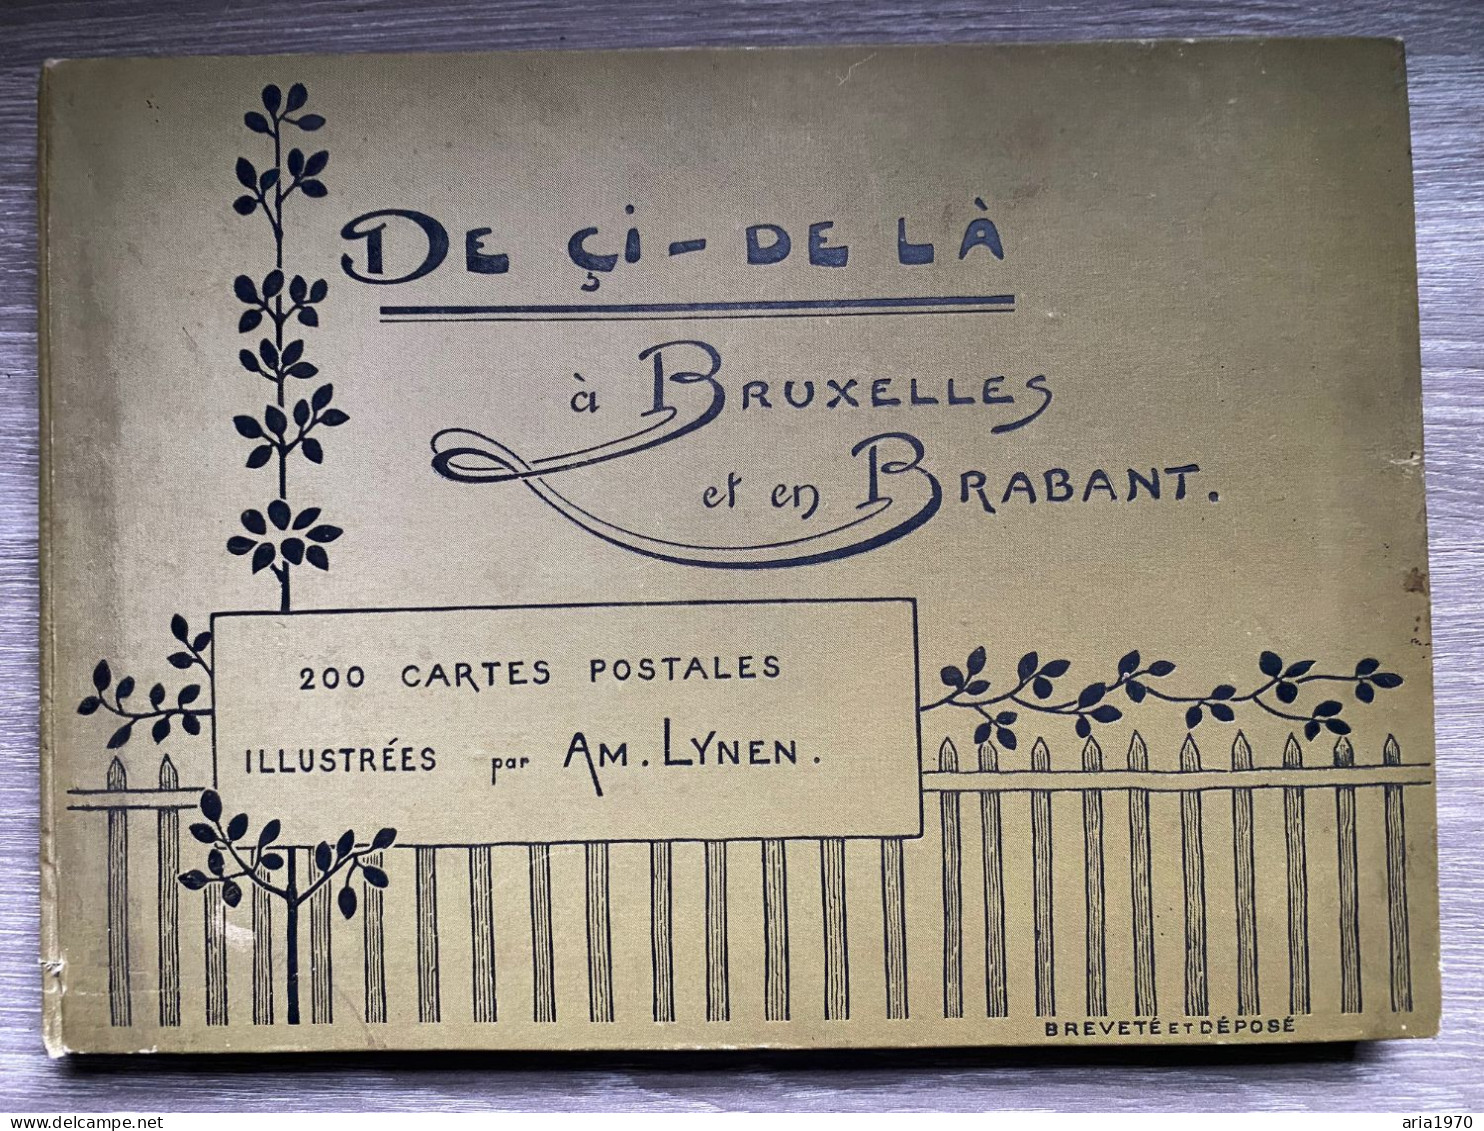 DE ÇI – DE LÀ
à BRUXELLES
et en BRABANT.
200 CARTES POSTALES
ILLUSTRÉES par AM. LYNEN.
BREVETÉ ET DÉPOSÉ
delcampe.net
aria1970